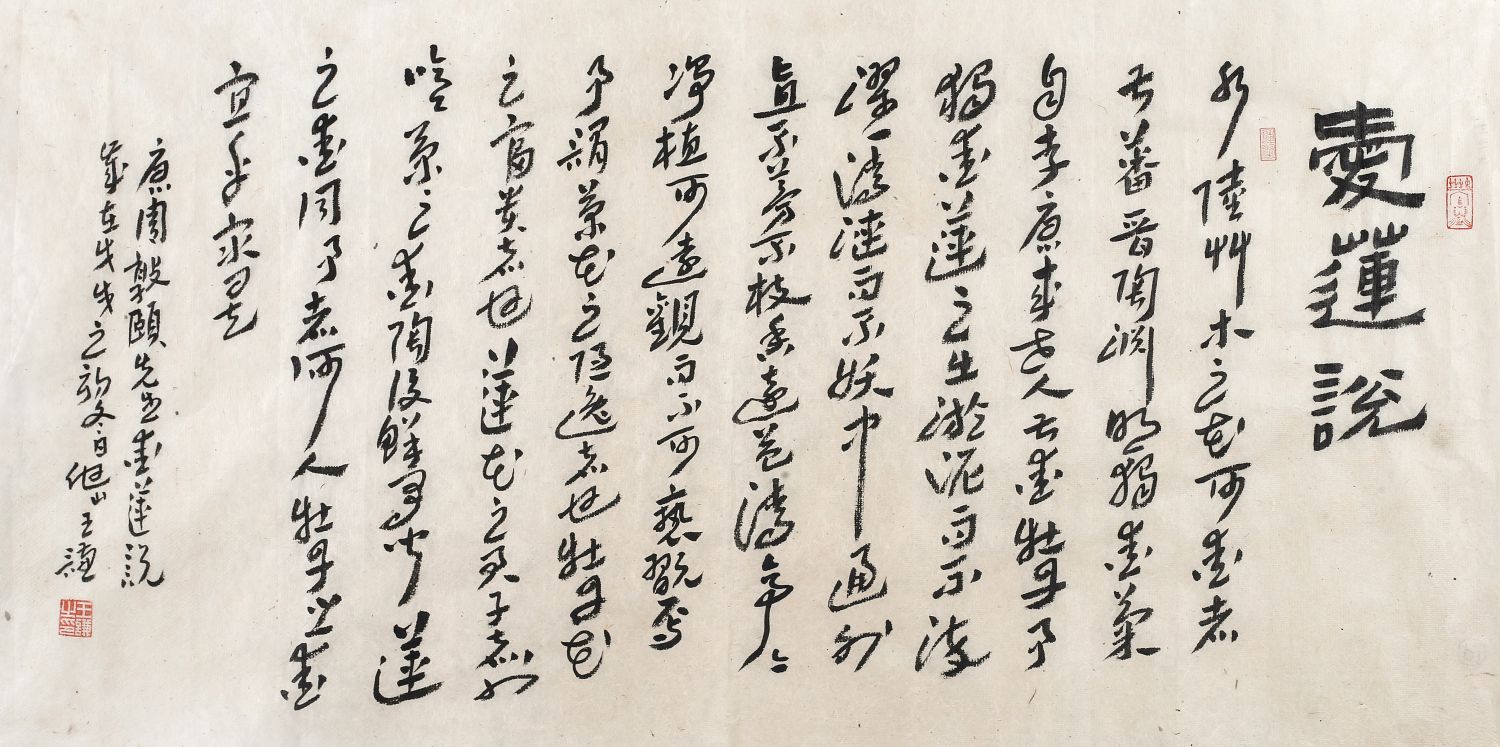 愛蓮説
水陸艸木之花可愛者
甚蕃晋陶渊明獨愛菊
自李唐來世人甚愛牡丹予
獨愛蓮之出淤泥而不染
濯清漣而不妖中通外
直不蔓不枝香遠益清亭〻
淨植可遠觀而不可褻翫焉
予謂菊花之隱逸者也牡丹花
之富貴者也蓮花之君子者也
噫菊之愛陶後鮮有聞蓮
之愛同予者何人牡丹之愛
宜乎衆矣
唐周敦頤先生愛蓮説
歲在戊戌之初冬日他山王謙
王謙之印